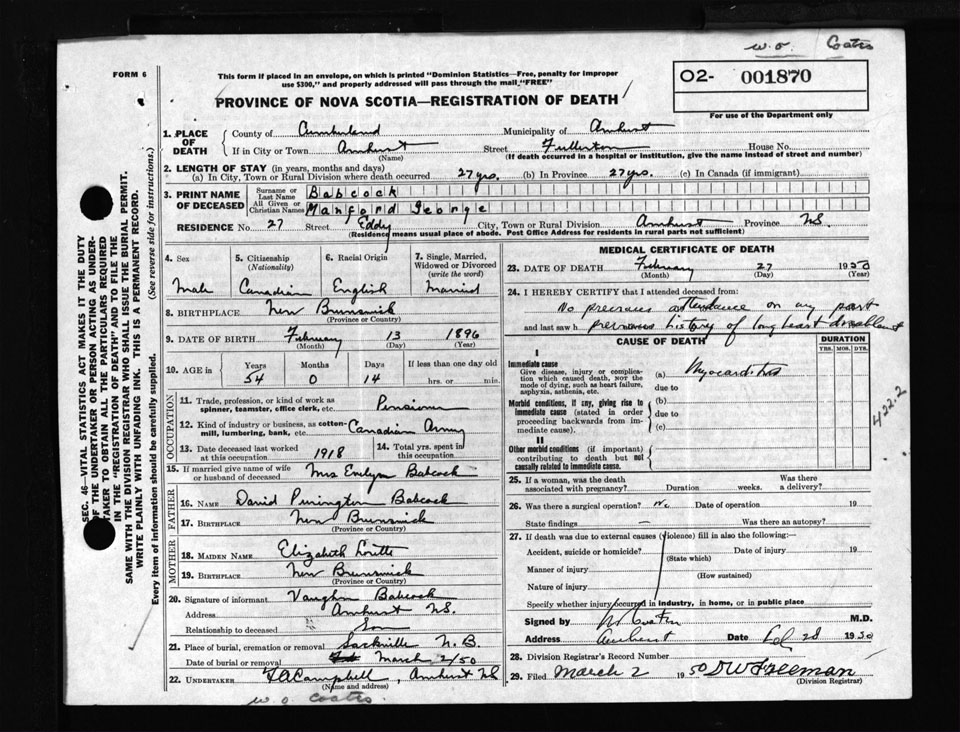 W. O. Coates
FORM 6
This form if placed in an envelope, on which is printed "Dominion Statistics—Free, penalty for improper
use $300," and properly addressed will pass through the mail "FREE"
O2- 001870
PROVINCE OF NOVA SCOTIA—REGISTRATION OF DEATH
For use of the Department only
1. PLACE OF DEATH { County of Cumberland Municipality of Amherst
If in City or Town Amherst Street Fullerton House No.
(Name) (If death occurred in a hospital or institution, give the name instead of street and number)
2. LENGTH OF STAY (in years, months and days)
(a) In City, Town or Rural Division where death occurred 27 yrs. (b) In Province 27 yrs. (c) In Canada (if immigrant)
3. PRINT NAME OF DECEASED { Surname or Last Name Babcock
All Given or Christian Names Manford George
RESIDENCE No. 27 Street Eddy City, Town or Rural Division Amherst Province N.S.
(Residency means usual place of abode. Post Office Address for residents in rural parts not sufficient)
4. Sex 5. Citizenship (Nationality) 6. Racial Origin 7. Single, Married, Widowed or Divorced (write the word)
Male Canadian English Married
8. BIRTHPLACE New Brunswick
(Province or Country)
9. DATE OF BIRTH February 13 1896
(Month) (Day) (Year)
10. AGE in Years Months Days If less than one day old
54 0 14 hrs. or min.
OCCUPATION
11. Trade, profession, or kind of work as
spinner, teamster, office clerk, etc. Pensioner
12. Kind of industry or business, as cotton-
mill, lumbering, bank, etc. Canadian Army
13. Date deceased last worked
at this occupation 1918
14. Total yrs. spent in
this occupation
15. If married give name of wife
or husband of deceased Mrs Evelyn Babcock
FATHER
16. NAME David Purington Babcock
17. BIRTHPLACE New Brunswick
(Province or Country)
MOTHER
18. MAIDEN NAME Elizabeth
19. BIRTHPLACE New Brunswick
(Province or Country)
20. Signature of informant Vaughn Babcock
Address Amherst N.S.
Relationship to deceased Son
21. Place of burial, cremation or removal Sackville N.B.
Date of burial or removal March 2/50
22. UNDERTAKER F A Campbell, Amherst NS
(Name and address)
W. O. Coates
MEDICAL CERTIFICATE OF DEATH
23. DATE OF DEATH February 27 1950
(Month) (Day)
24. I HEREBY CERTIFY that I attended deceased from:
No previous attendance on my part
and last saw h previous history of long heart disablement
CAUSE OF DEATH DURATION
YRS. MOS. DYS.
I
Immediate cause
Give disease, injury or complica-
tion which caused death, not the
mode of dying, such as heart failure,
asphyxia, asthenia, etc.
(a) Myocarditis
due to
Morbid conditions, if any, giving rise to
immediate cause (stated in order
proceeding backwards from im-
mediate cause).
(b)
due to
(c)
II
Other morbid conditions (if important)
contributing to death but not
causally related to immediate cause.
422.2
25. If a woman, was the death
associated with pregnancy? Duration weeks. Was there
a delivery?
26. Was there a surgical operation? No Date of operation 19
State findings — Was there an autopsy?
27. If death was due to external causes (violence) fill in also the following:—
Accident, suicide or homicide? Date of injury 19
(State which)
Manner of injury
(How sustained)
Nature of injury
Specify whether injury occurred in industry, in home, or in public place
Signed by W Coates M.D.
Address Amherst Date Feb 28 1950
28. Division Registrar's Record Number
29. Filed March 2 1950 D W Freeman
(Division Registrar)
SEC. 46—VITAL STATISTICS ACT MAKES IT THE DUTY
OF THE UNDERTAKER OR PERSON ACTING AS UNDER-
TAKER TO OBTAIN ALL THE PARTICULARS REQUIRED
IN THE "REGISTRATION OF DEATH" AND TO FILE THE
SAME WITH THE DIVISION REGISTRAR WHO SHALL ISSUE THE BURIAL PERMIT.
WRITE PLAINLY WITH UNFADING INK. THIS IS A PERMANENT RECORD.
Every item of information should be carefully supplied. (See reverse side for instructions.)